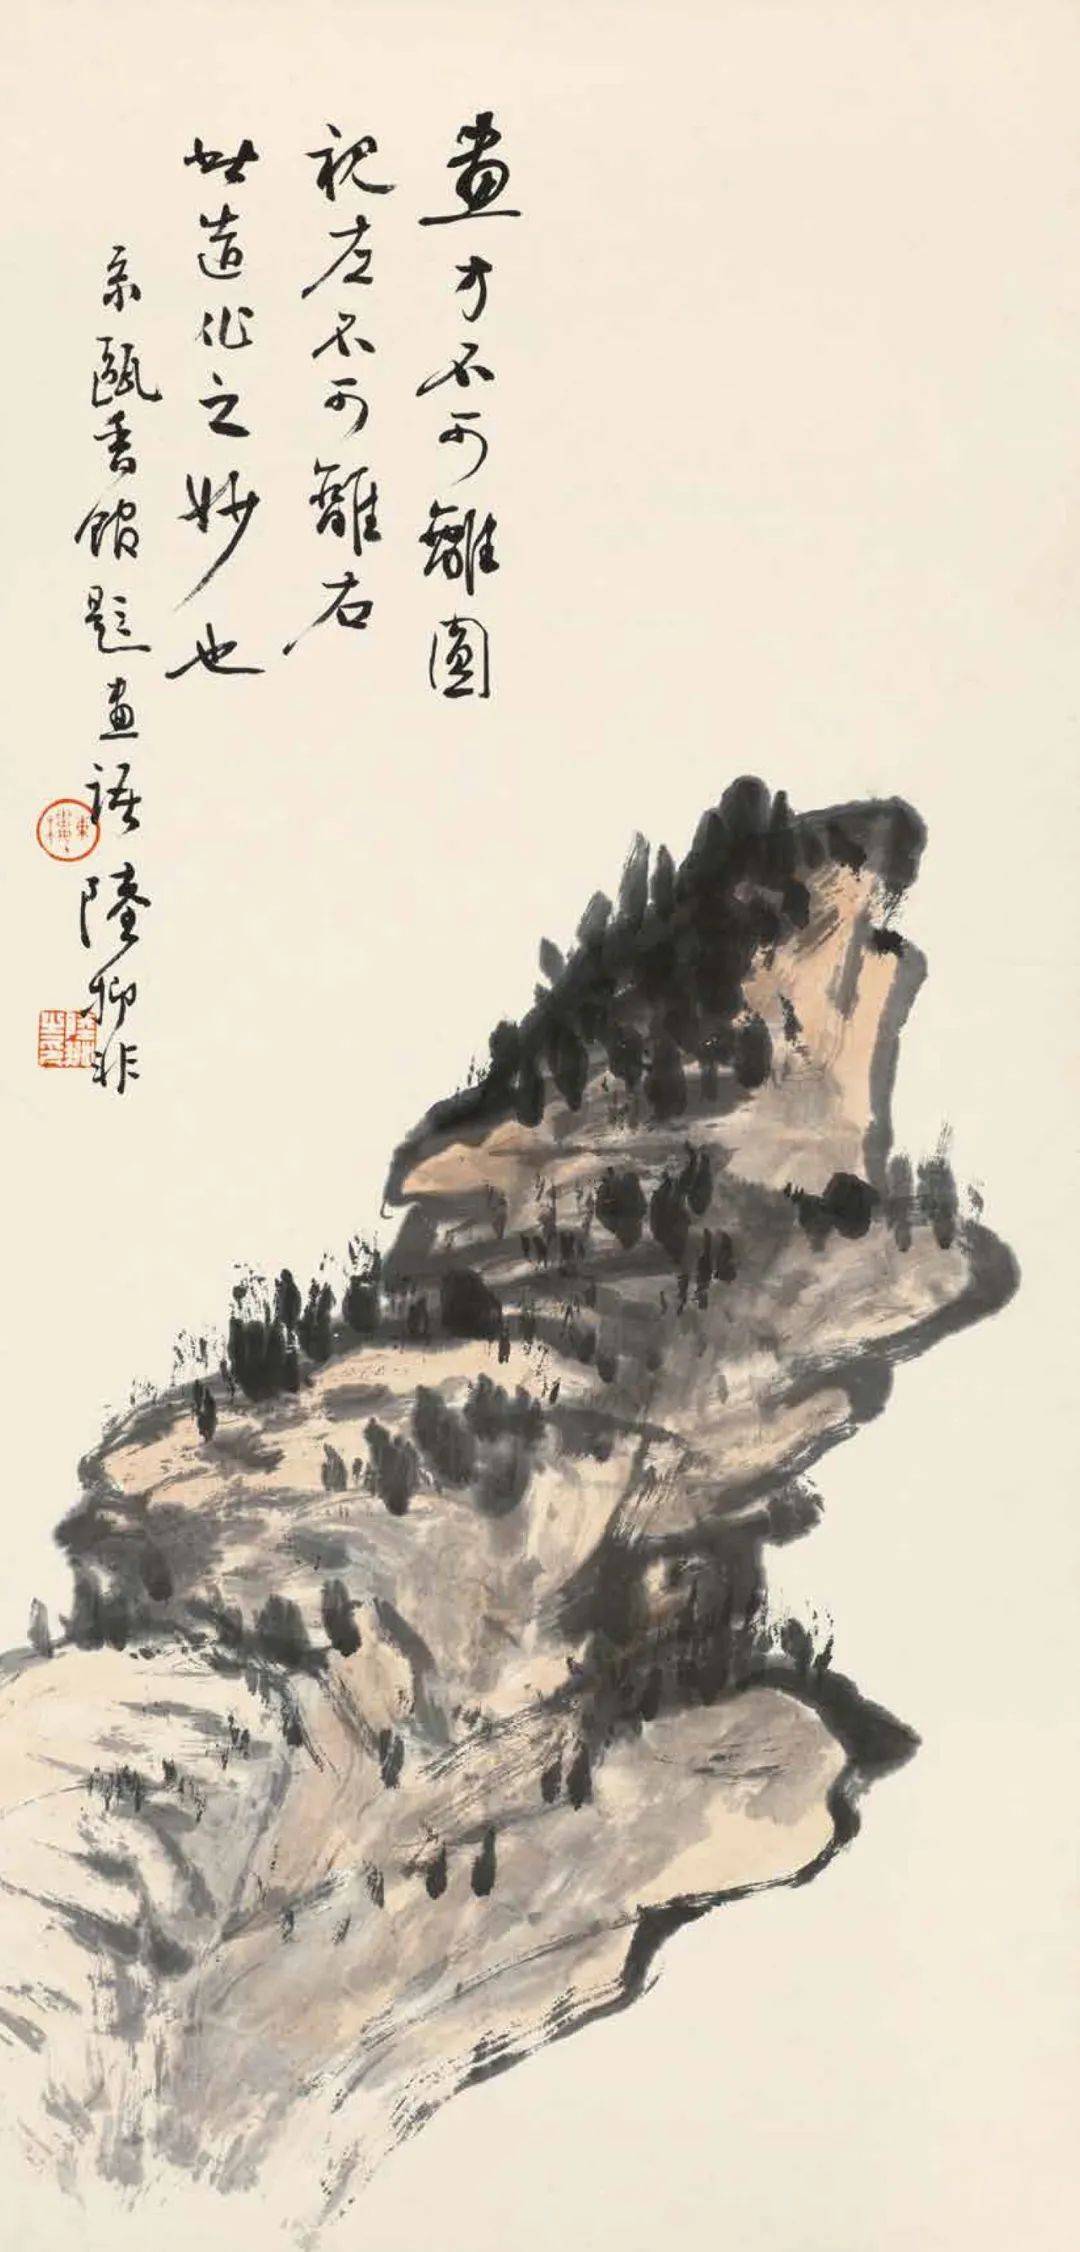 畫方不可離圓
視左不可離右
此造化之妙也
録甌香館題畫語 陸抑非